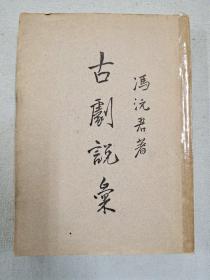 馮沅君著
古劇說彙